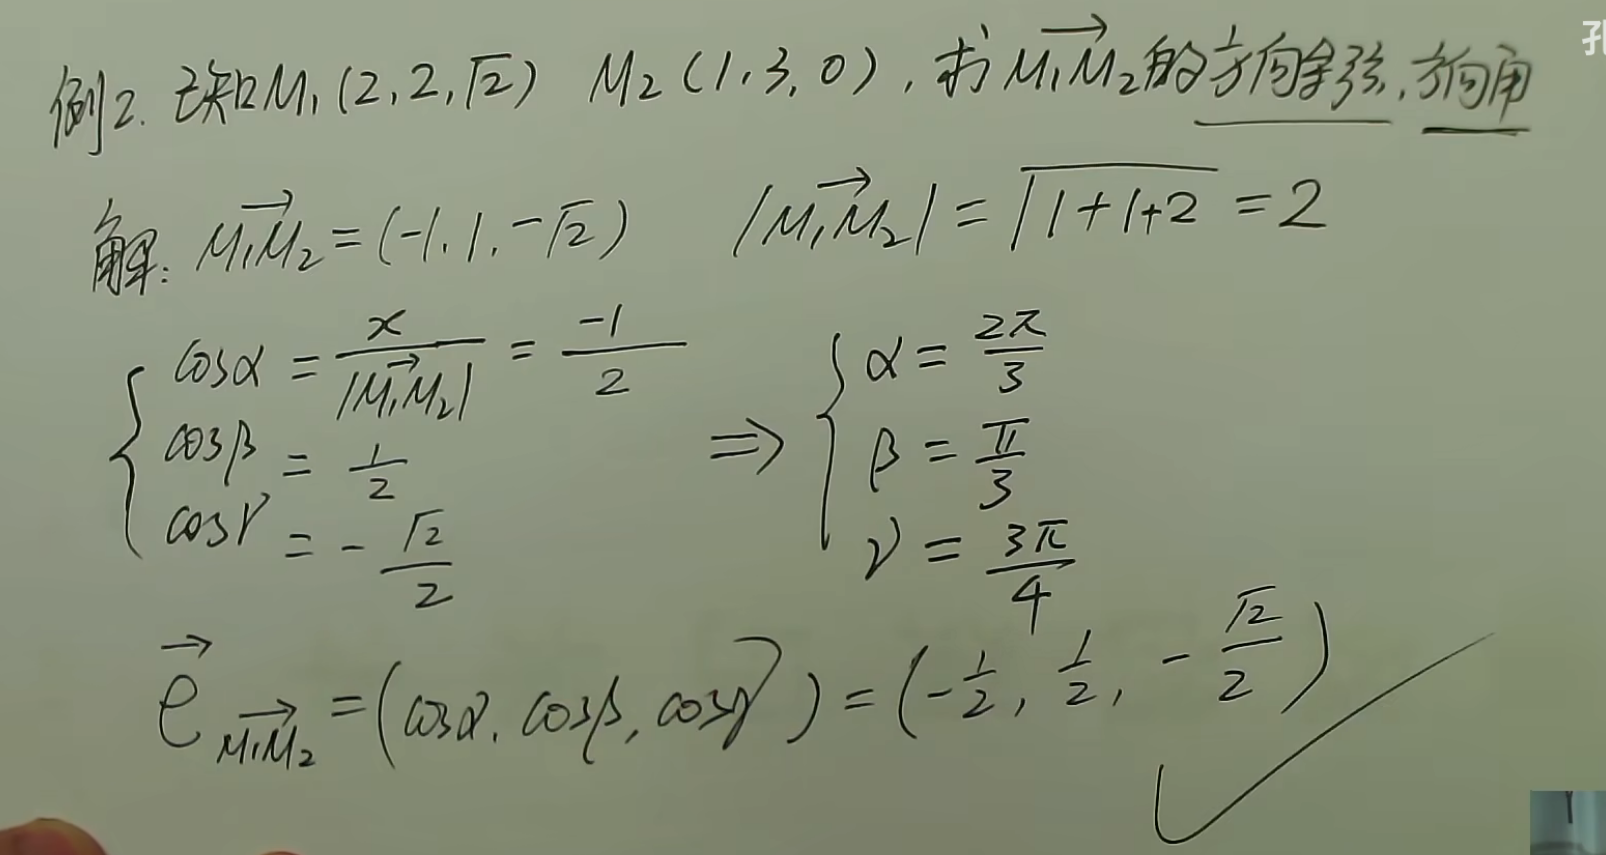 孔
例2. 已知M₁(2,2,√2) M₂(1,3,0),求M₁M₂→的方向余弦,方向角
解: M₁M₂→=(-1,1,-√2) |M₁M₂→|=√(1+1+2)=2
cosα = x/|M₁M₂→| = -1/2 ⇒ α = 2π/3
cosβ = 1/2 β = π/3
cosγ = -√2/2 γ = 3π/4
e→ M₁M₂→ =(cosα, cosβ, cosγ)=(-1/2, 1/2, -√2/2)